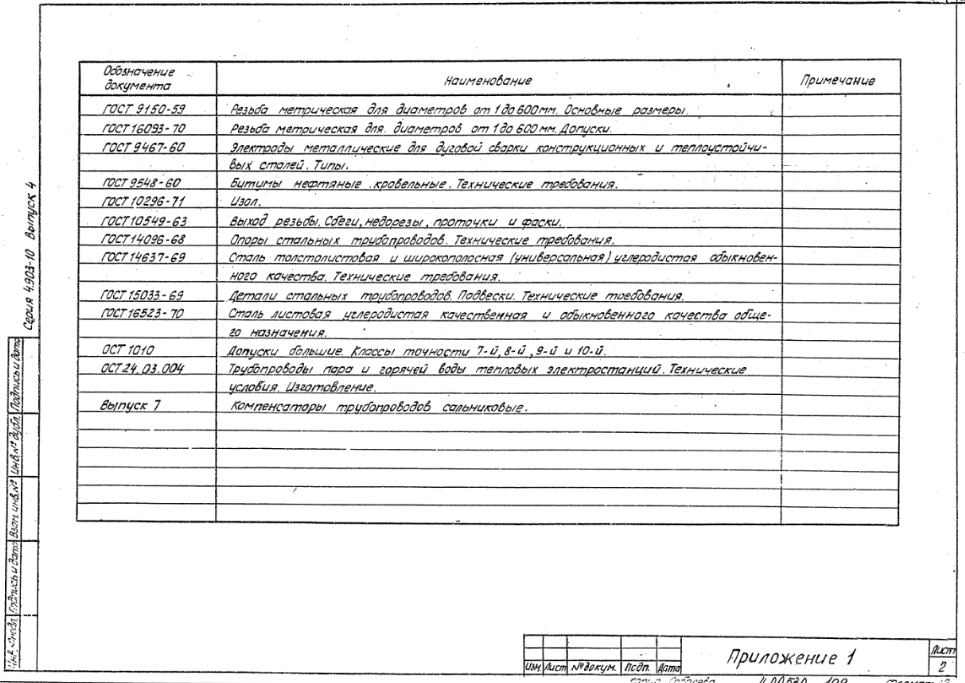 Обозначение документа
Наименование
Примечание
ГОСТ 9150-59 Резьба метрическая для диаметров от 1 до 600 мм. Основные размеры.
ГОСТ 16093-70 Резьба метрическая для диаметров от 1 до 600 мм. Допуски.
ГОСТ 9467-60 Электроды металлические для дуговой сварки конструкционных и теплоустойчи-
вых сталей. Типы.
ГОСТ 9548-60 Битумы нефтяные кровельные. Технические требования.
ГОСТ 10296-71 Изол.
ГОСТ 10549-63 Выход резьбы. Сбеги, недорезы, проточки и фаски.
ГОСТ 14096-68 Опоры стальных трубопроводов. Технические требования.
ГОСТ 14637-69 Сталь толстолистовая и широкополосная (универсальная) углеродистая обыкновен-
ного качества. Технические требования.
ГОСТ 15033-69 Детали стальных трубопроводов. Подвески. Технические требования.
ГОСТ 16523-70 Сталь листовая углеродистая качественная и обыкновенного качества обще-
го назначения.
ОСТ 1010 Допуски большие. Классы точности 7-й, 8-й, 9-й и 10-й.
ОСТ 24.03.004 Трубопроводы пара и горячей воды тепловых электростанций. Технические
условия. Изготовление.
Выпуск 7 Компенсаторы трубопроводов сальниковые.
Серия 4.903-10 Выпуск 4
Инв. № подл. Подпись и дата Взам. инв. № Инв. № дубл. Подпись и дата
Изм. Лист № докум. Подп. Дата
Приложение 1
Лист
2